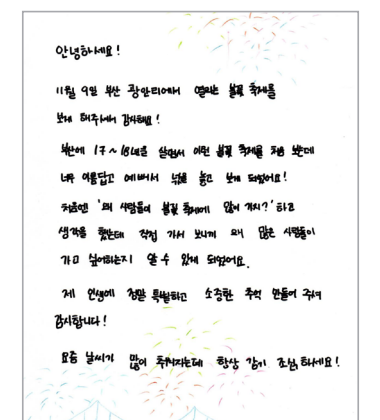 안녕하세요!
11월 9일 부산 광안리에서 열리는 불꽃 축제를
보게 해주셔서 감사해요!
부산에 17~18년을 살면서 이런 불꽃 축제를 처음 보는데
너무 아름답고 예뻐서 넋을 놓고 보게 되었어요!
처음엔 '왜 사람들이 불꽃 축제에 많이 가지?' 하고
생각을 했는데 직접 가서 보니까 왜 많은 사람들이
가고 싶어하는지 알 수 있게 되었어요.
제 인생에 정말 특별하고 소중한 추억 만들어 주셔
감사합니다!
요즘 날씨가 많이 추워지는데 항상 감기 조심, 하세요!